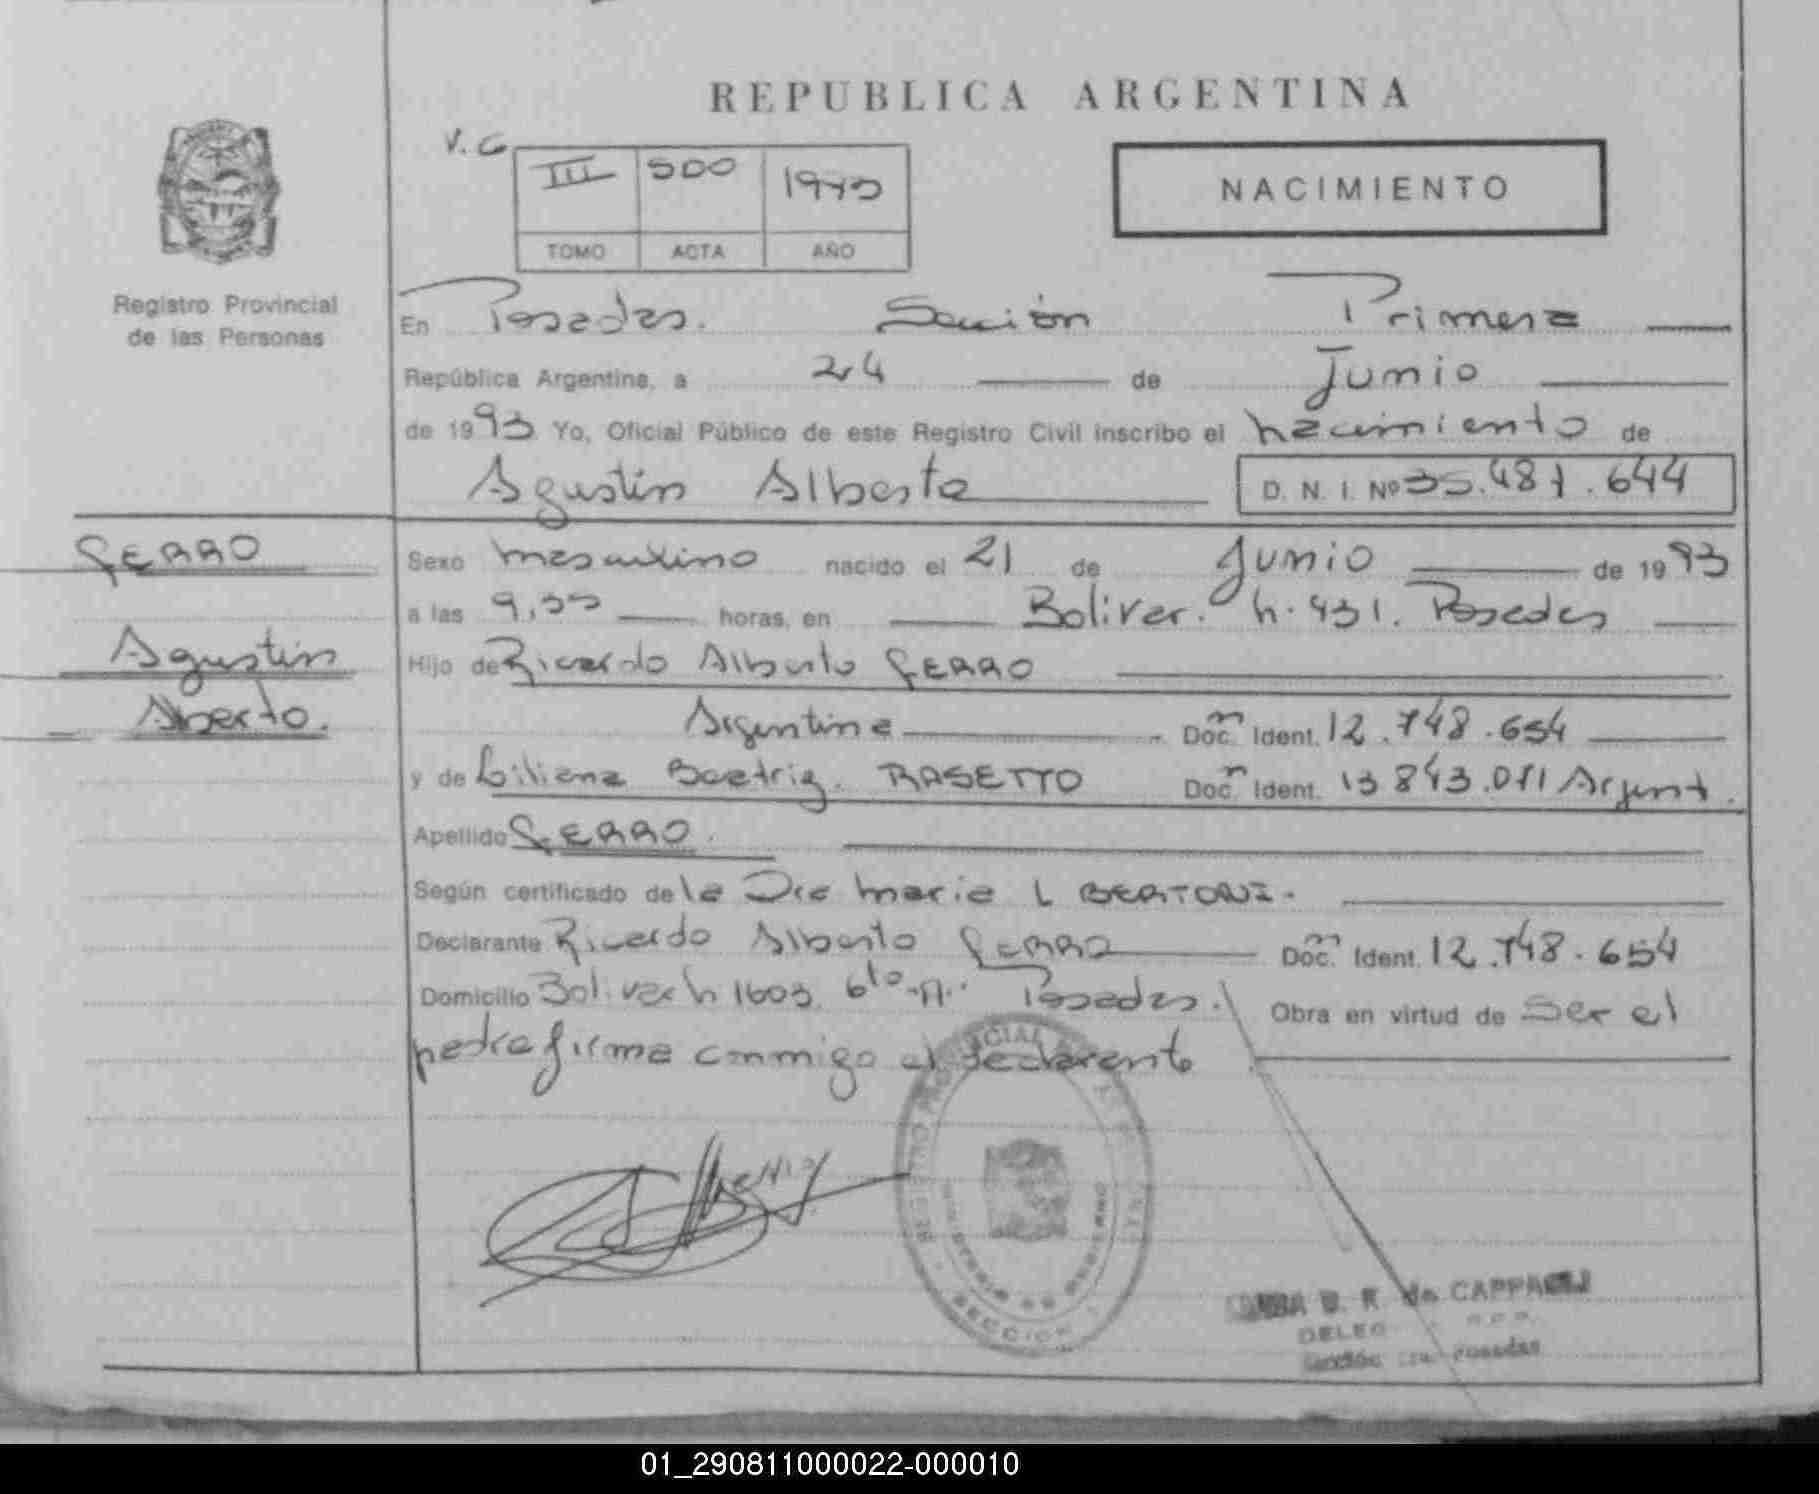 REPUBLICA ARGENTINA
V. G
III 500 1993
TOMO ACTA AÑO
NACIMIENTO
Registro Provincial
de las Personas
En Posadas. Sección Primera
República Argentina, a 24 de Junio
de 1993 Yo, Oficial Público de este Registro Civil inscribo el nacimiento de
Agustín Alberto D. N. I. Nº 35.487.644
FERRO
Agustín
Alberto.
Sexo masculino nacido el 21 de Junio de 1993
a las 9,55 horas, en Bolivar. n. 431. Posadas
Hijo de Ricardo Alberto FERRO
Argentina Doc. m Ident. 12.748.654
y de Liliana Beatriz. RASETTO Doc. n Ident. 13 843.011 Argent.
Apellido FERRO.
Según certificado de la Dra Maria L BERTONI.
Declarante Ricardo Alberto FERRO Doc. m Ident. 12.748.654
Domicilio Bolivar n 1603. 6to "A" Posadas. Obra en virtud de Ser el
padre firma conmigo el declarante
SECCION
B. R. de CAPPA
DELEG
Posadas
01_290811000022-000010